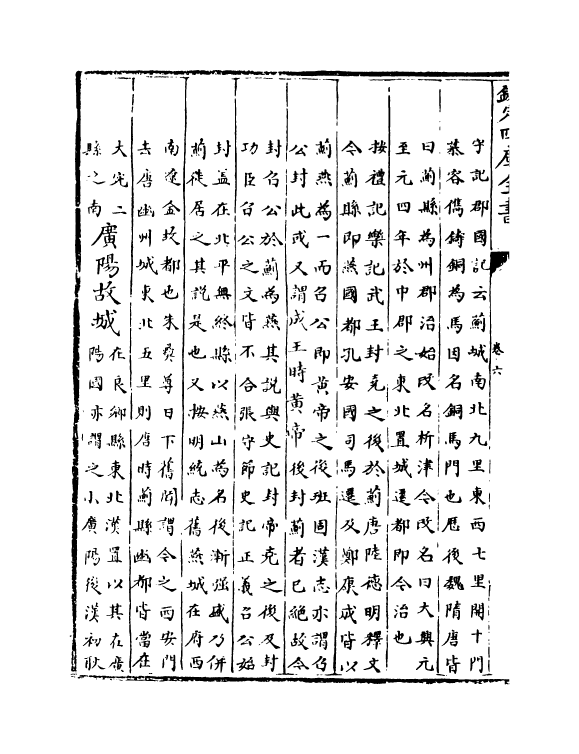 欽定四庫全書
卷六
字記郡國記云薊城南北九里東西七里開十門
慕容儁鑄銅為馬因名銅馬門也厯後魏隋唐皆
曰薊縣為州郡治始改名析津今改名曰大興元
至元四年於中郡之東北置城遷都即今治也
按禮記樂記武王封堯之後於薊唐陸德明釋文
今薊縣即燕國都孔安國司馬遷及鄭康成皆以
薊燕為一而召公即黄帝之後班固漢志亦謂召
公封此或又謂成王時黄帝後封薊者已絶故今
封召公於薊為燕其說與史記封帝堯之後及封
功臣召公之文皆不合張守節史記正義召公始
封盖在北平無終縣以燕山為名後漸强盛乃併
薊徙居之其說是也又按明統志舊燕城在府西
南遼金故都也朱彞尊日下舊聞謂今之西安門
去唐幽州城東北五里則唐時薊縣幽都皆當在
大宛二
縣之南
廣陽故城
在良鄉縣東北漢置以其在廣
陽國亦謂之小廣陽後漢初耿